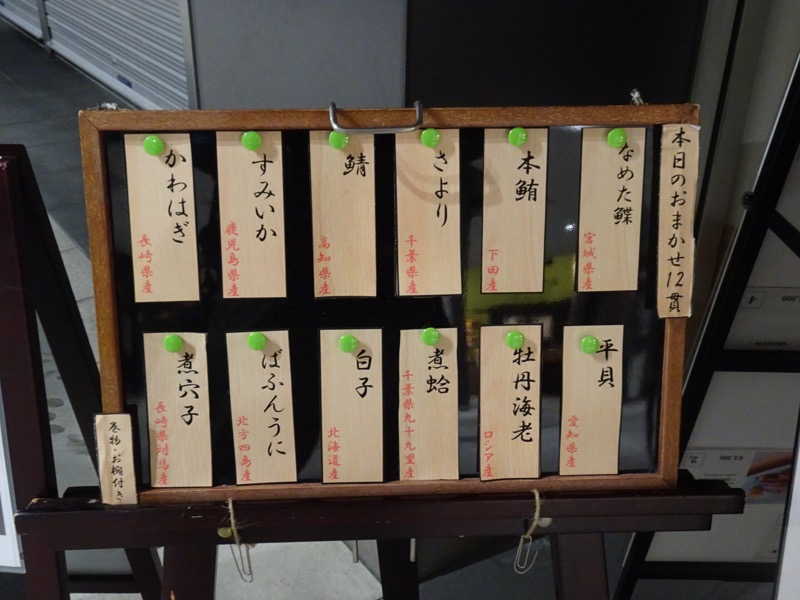 本日のおまかせ12貫
なめた鰈
宮城県産
本鮪
下田産
さより
千葉県産
鯖
高知県産
すみいか
鹿児島県産
かわはぎ
長崎県産
平貝
愛知県産
牡丹海老
ロシア産
煮蛤
千葉県九十九里産
白子
北海道産
ばふんうに
北方四島産
煮穴子
長崎県対馬産
巻物・お椀付き